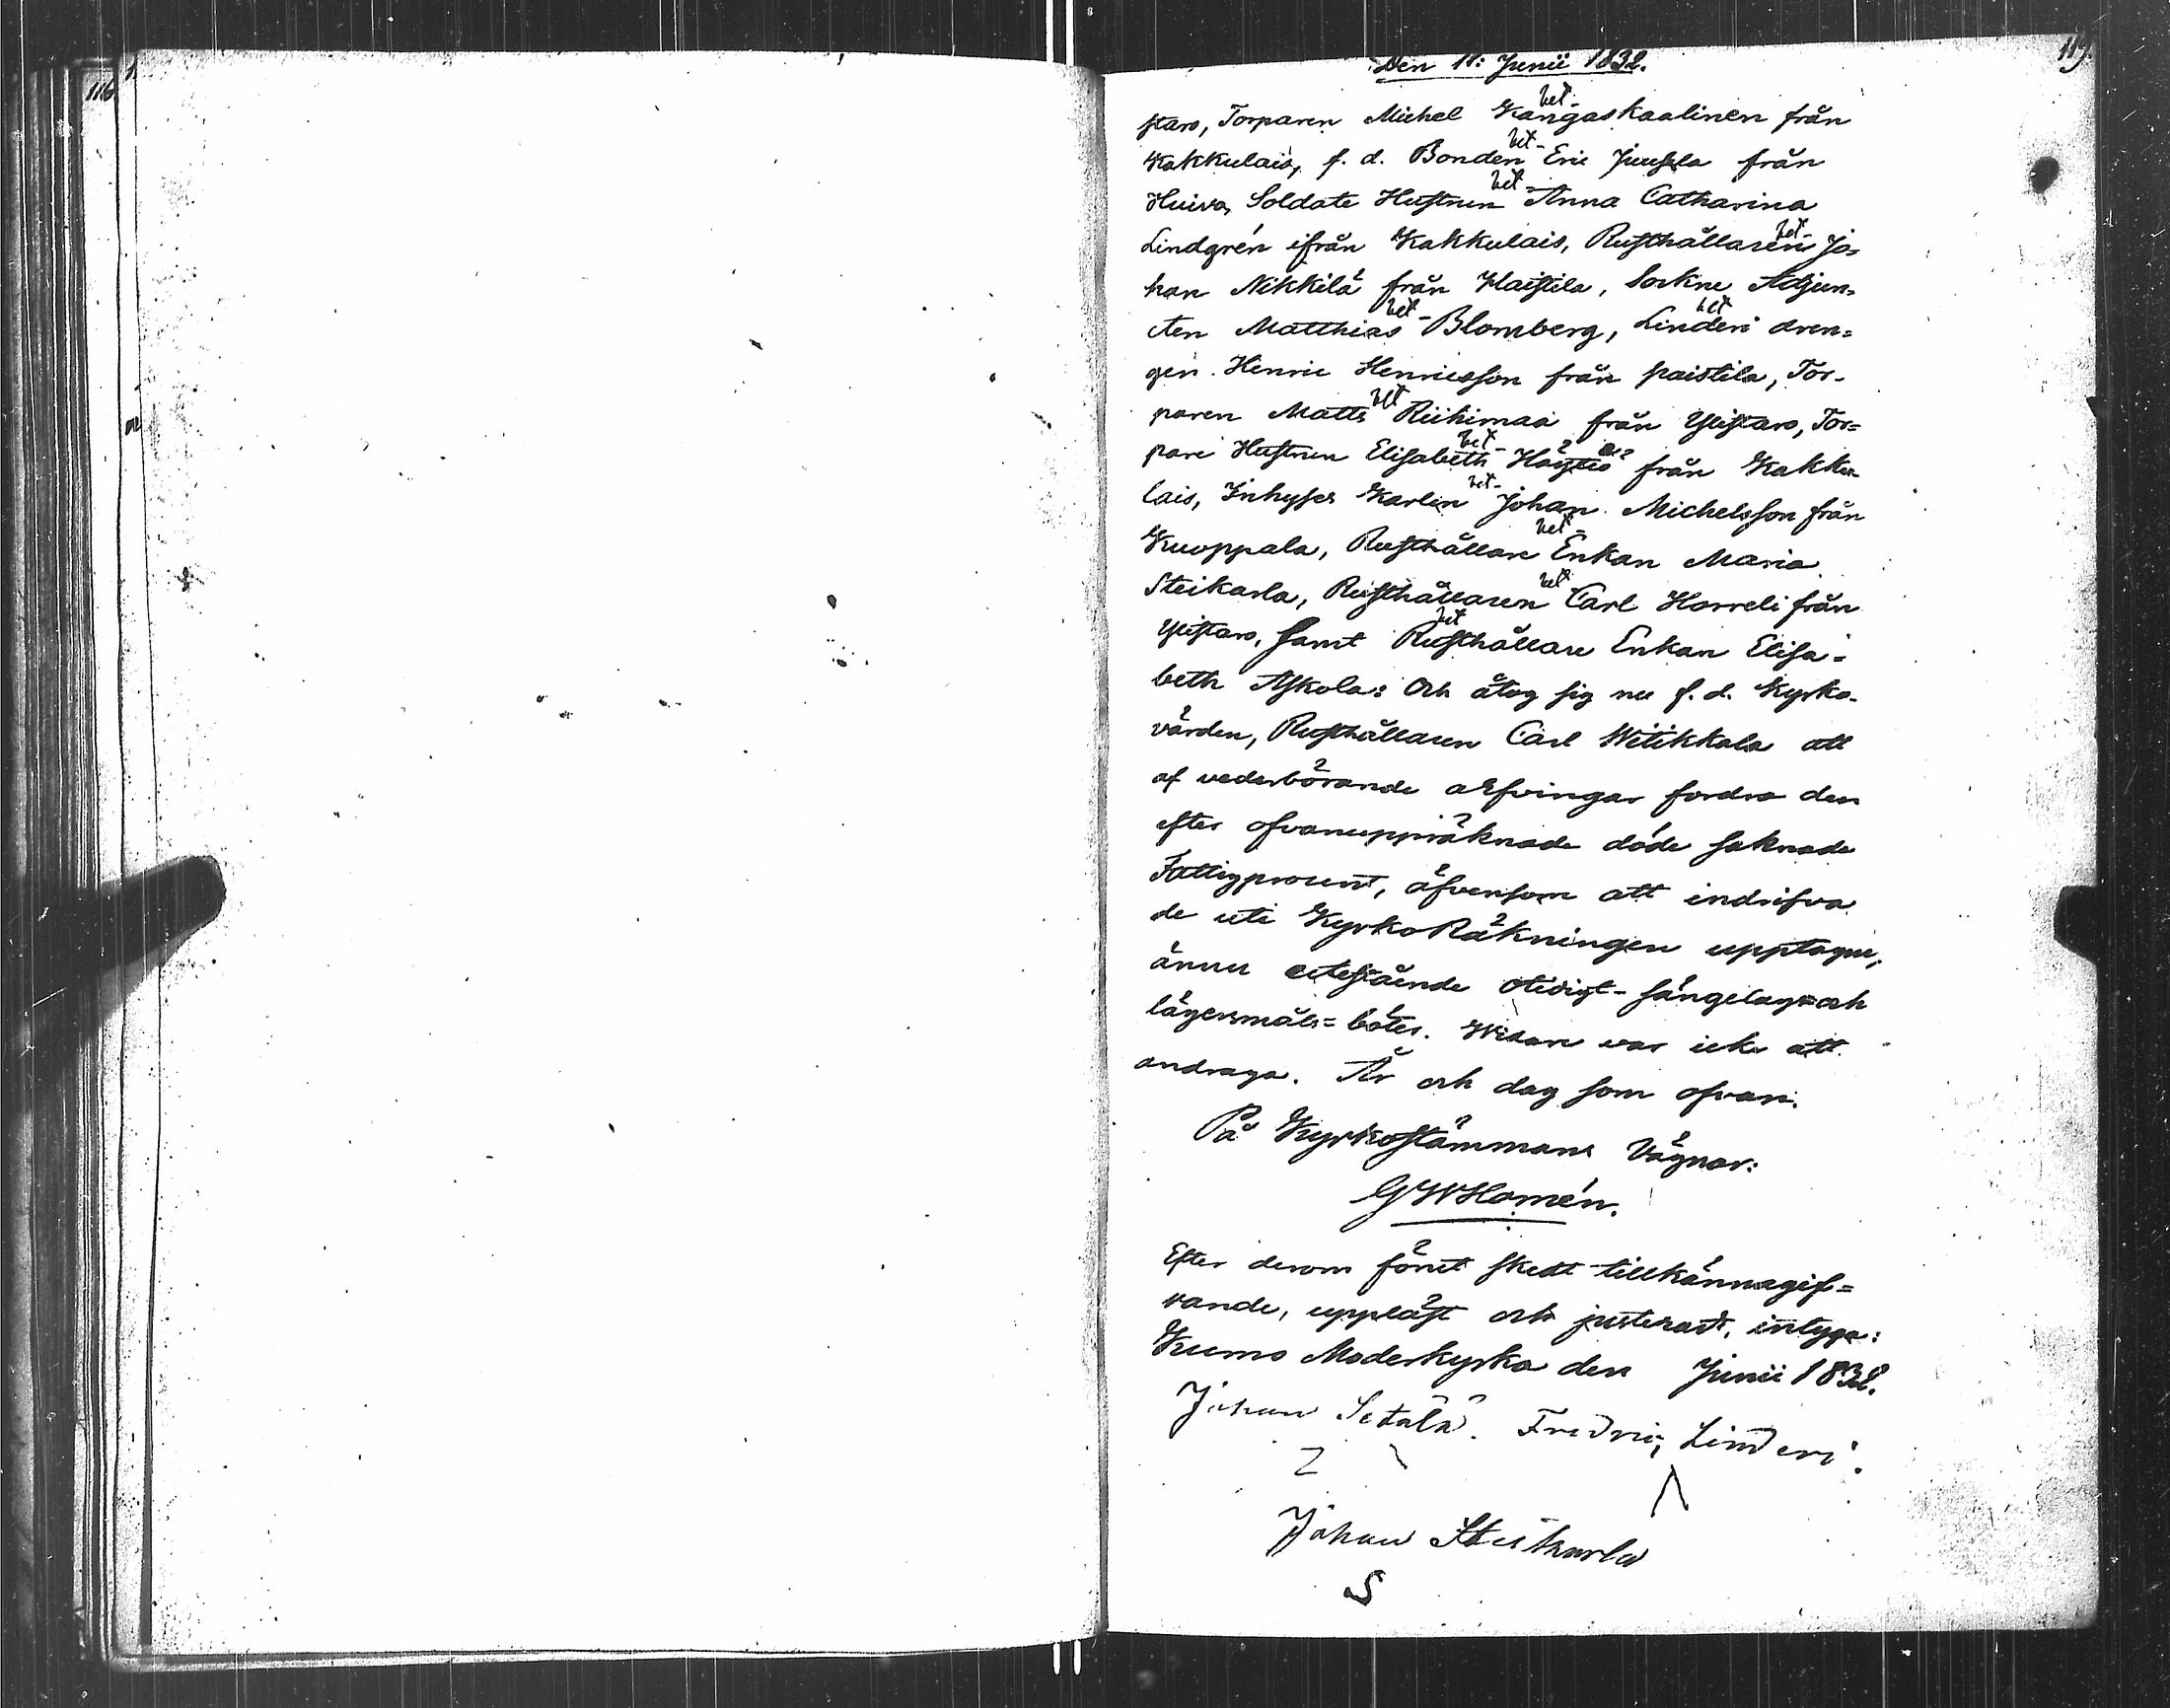 116.
117.
Den 11: Junii 1832.
staro, Torparen Michel bet- Kangaskaalinen från
Kakkulais, f. d. Bonden bet- Eric Juusela från
Huiva, Soldate Hustrun bet- Anna Catharina
Lindgrén ifrån Kakkulais, Rusthållaren bet- Jo=
han Nikkilä från Haistila, Sockne Adjunc=
ten Matthias bet- Blomberg, Linderi bet dren=
gen Henric Henricsson från paistila, Tor-
paren Matts bet Riihimaa från Ylistaro, Tor=
pare Hustrun Elisabeth bet- Höytiö från Kakku
lais, Inhyses Karlen bet- Johan Michelsson från
Kuoppala, Rusthållare bet- Enkan Maria
Steikarla, Rusthållaren bet Carl Horreli från
Ylistaro, samt bet Rusthållare Enkan Elisa=
beth Askola: Och åtog sig nu f. d. Kyrko-
värden, Rusthållaren Carl Witikkala att
af vederbörande arfvingar fordra den
efter ofvanuppräknade döde saknade
Fattigprocent, äfvensom att indrifva
de uti KyrkoRäkningen upptagne,
ännu utestående otidigt- sängelags och
lägersmåls= böter. Widare var icke att
andraga. År och dag som ofvan.
På Kyrkostämmans Vägnar:
GWHomén.
Efter derom förut skedt tillkännagif=
vande, uppläst och justeradt, intyga:
Kumo Moderkyrka den Junii 1832.
Johan Setälä. Fredric Linderi.
Johan Steikarla
S